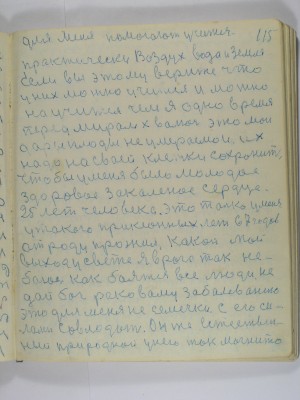 для меня помогают учится. 115
практически Воздух вода и земля
если вы этому верите что
у них можно учится и можно
научится чем я одно время
перед миром хвалюсь это мои
дары плоды не умираемой, их
надо на своей клетки сохронить,
чтобы у меня было молодое
здоровое закаленое сердце.
25 лет человека. Это только у меня
у такого приклонных лет 67 годов
от роду прожил. Какой мой
выход у свете я врого так не-
боюс как боятся все люди не
дай бог раковому заболеванию
это для меня не семечки. с его си-
лами совладат. Он же естествен-
ный природной у него так магнито